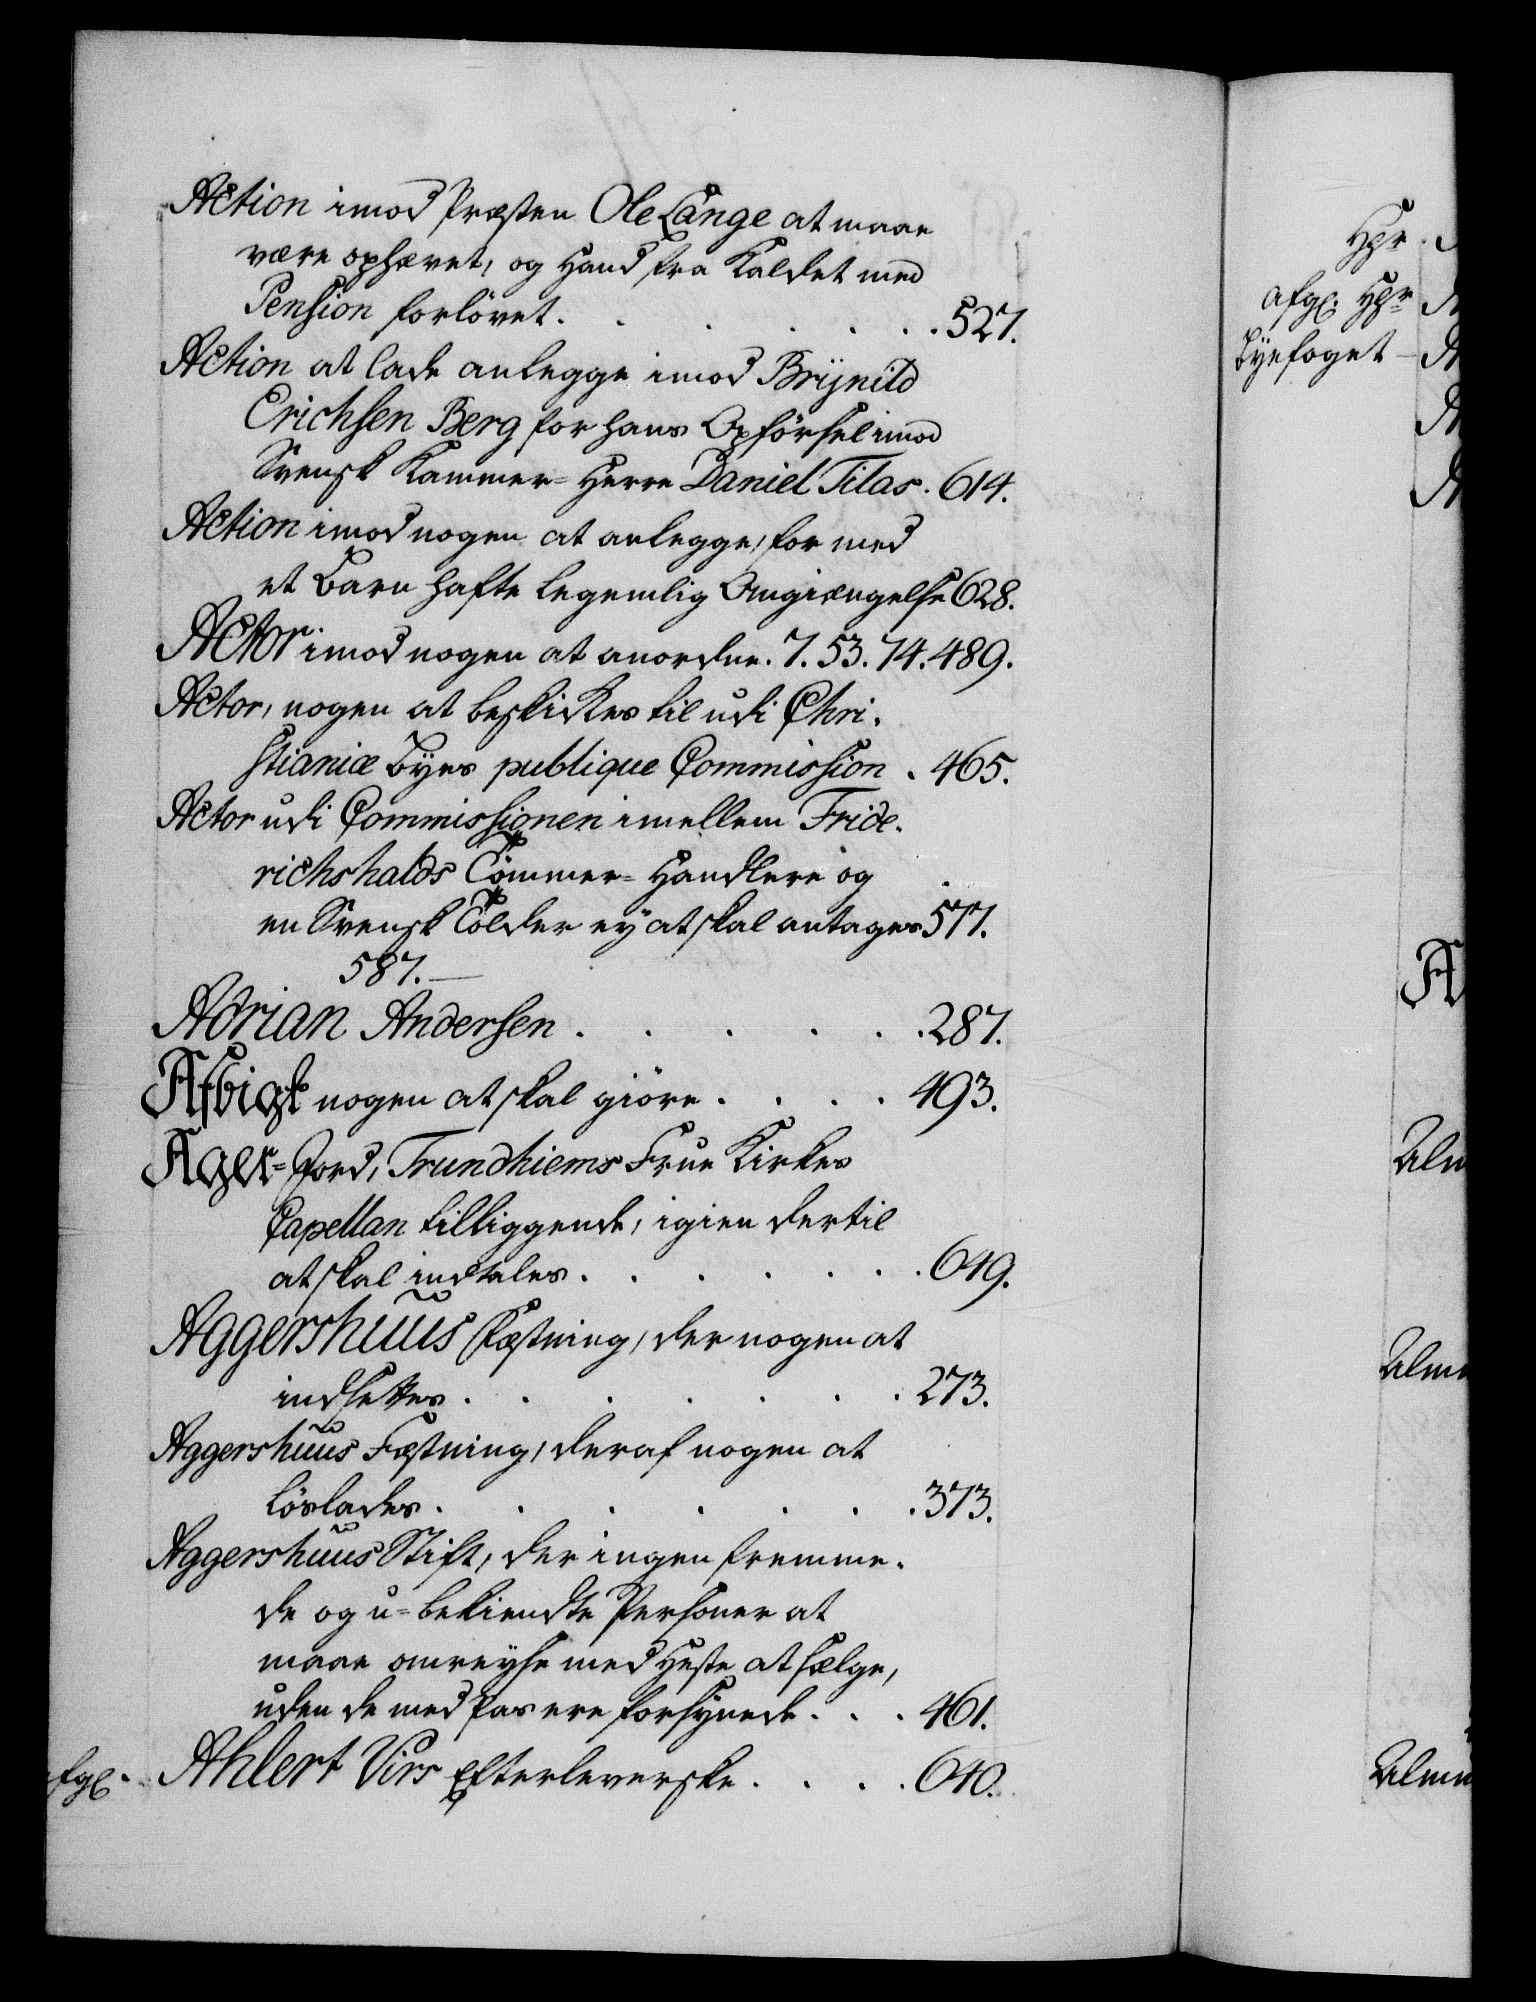 Action imod Præsten Ole Lange at maae
være ophævet, og Hand fra Kaldet med
Pension forlövet. . . . . . . 527.
Action at lade anlegge imod Brÿnild
Erichsen Berg for hans Opförsel imod
Svensk Kammer-Herre Daniel Tilas. 614.
Action imod nogen at anlegge, for med
et Barn hafte legemlig Omgiængelse 628.
Actor imod nogen at anordne. 7. 53. 74. 489.
Actor, nogen at beskikkes til udi Chri-
stianiæ Byes publique Commission . 465.
Actor udi Commissionen imellem Fride-
richshalds Tömmer-Handlere og
en Svensk Tolder eÿ at skal antages 577.
587.
Adrian Andersen . . . . . . 287.
Afbigt nogen at skal giöre . . . . 493.
Ager-Jord, Trundhiems Frue Kirkes
Capellan tilliggende, igien dertil
at skal indtales . . . . . . 649.
Aggershuus Fæstning, der nogen at
indsettes . . . . . . . 273.
Aggershuus Fæstning, deraf nogen at
löslades . . . . . . . 373.
Aggershuus Stift, der ingen fremme-
de og u-bekiendte Personer at
maae omreÿse med Heste at sælge,
uden de med Pas ere forsÿnede . . . 461.
fgl. Ahlert Virs Efterleverske . . . . 640.
Hpr.
afgl. Hpr
Bÿefoget
A
Alm
Alm
Alm